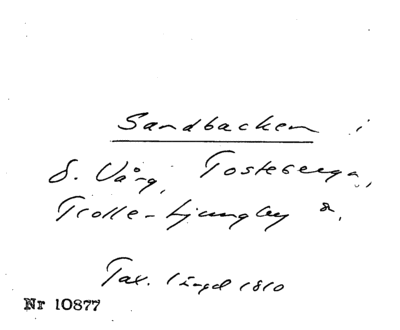 Sandbacken i
S. Vång, Tosteberga,
Trolle-Ljungby s.
Tax. längd 1810
Nr 10877